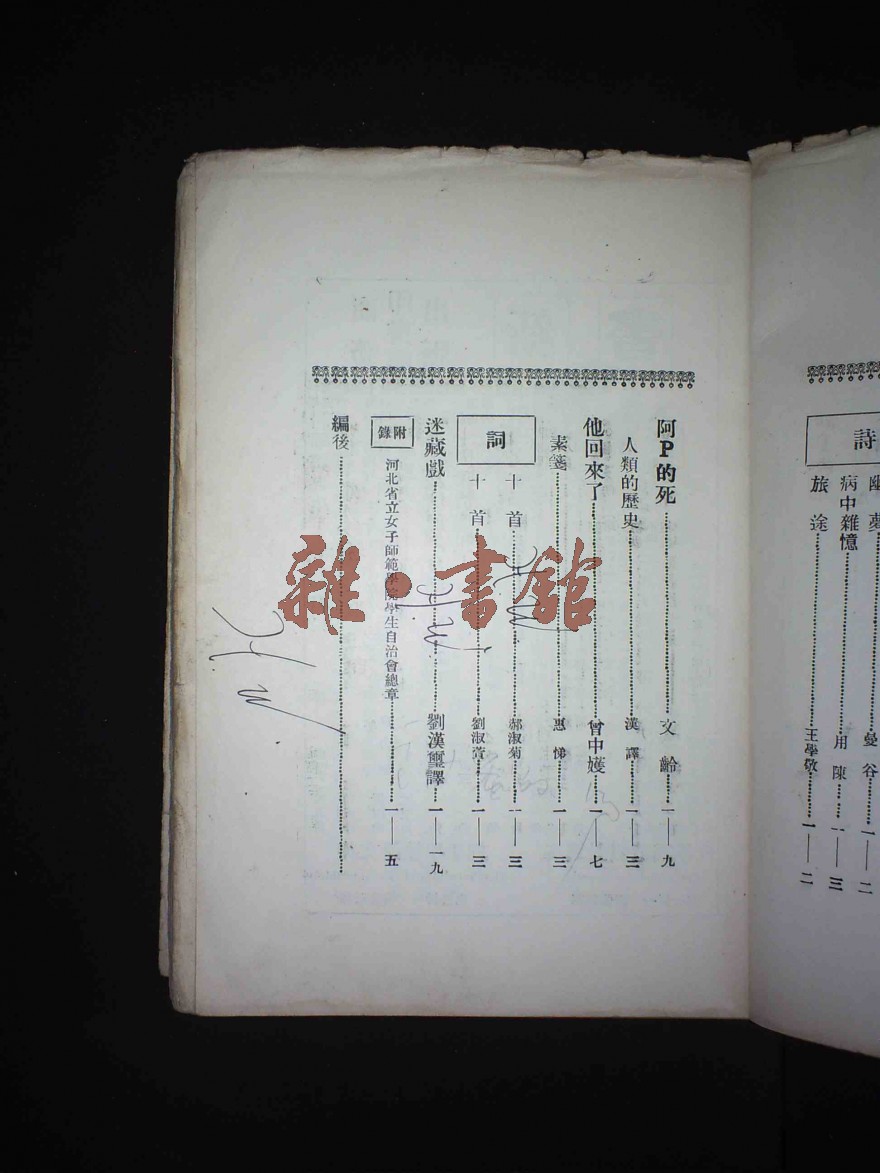 詩
幽夢……曼谷……一——二
病中雜憶……用陳……一——三
旅途……王學敬……一——二
阿P的死……文齡……一——九
人類的歷史……漢譯……一——三
他回來了……曾中孇……一——七
素箋……惠悌……一——三
詞
十首……郝淑菊……一——三
十首……劉淑萱……一——三
迷藏戲……劉漢璽譯……一——一九
附錄
河北省立女子師範學院學生自治會總章……一——五
編後……
雜·書館